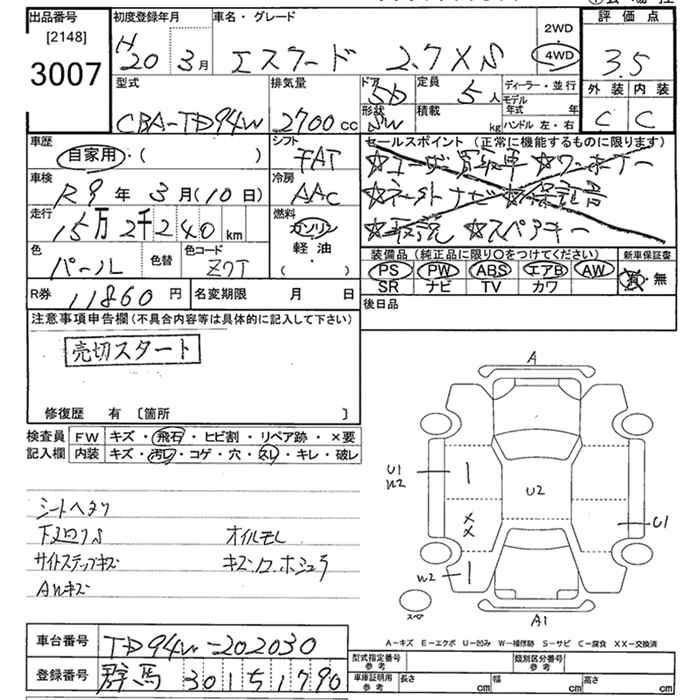 出品番号
[2148]
3007
初度登録年月
H20 3月
車名・グレード
エスクード 2.7XS
2WD
4WD
評価点
3.5
外装 内装
C C
型式
CBA-TD94W
排気量
2700cc
ドア
5D
形状
SW
定員
5人
積載
kg
ディーラー・並行
モデル年式 年
ハンドル 左・右
車歴
自家用・( )
車検
R9年3月(10日)
走行
15万2千240km
色
パール
色替
色コード
Z7T
シフト
FAT
冷房
AAC
燃料
ガソリン
軽油
( ・ )
セールスポイント(正常に機能するものに限ります)
☆ユーザー買取車 ☆ワンオーナー
☆ネット ナビ ☆保証書
☆取説 ☆スペアキー
装備品(純正品に限り○をつけてください)
PS PW ABS エアB AW
SR ナビ TV カワ
新車保証書
有・無
R券 11860円
名変期限 月 日
後日品
注意事項申告欄(不具合内容等は具体的に記入して下さい)
売切スタート
修復歴 有 [箇所 ]
検査員記入欄
FW キズ・飛石・ヒビ割・リペア跡・×要
内装 キズ・汚レ・コゲ・穴・スレ・キレ・破レ
シートヘタリ
下廻りS オイルモレ
サイドステップキズ キズ・ソロ・ホシュウ
AWキズ
A
U1
W2
U2
XX
U1
W2
スペア
A1
A-キズ E-エクボ U-凹み W-補修跡 S-サビ C-腐食 XX-交換済
車台番号 TD94W-202030
登録番号 群馬 301 5 1790
型式指定番号 参考
類別区分番号 参考
車庫証明用 参考
長さ cm
幅 cm
高さ cm